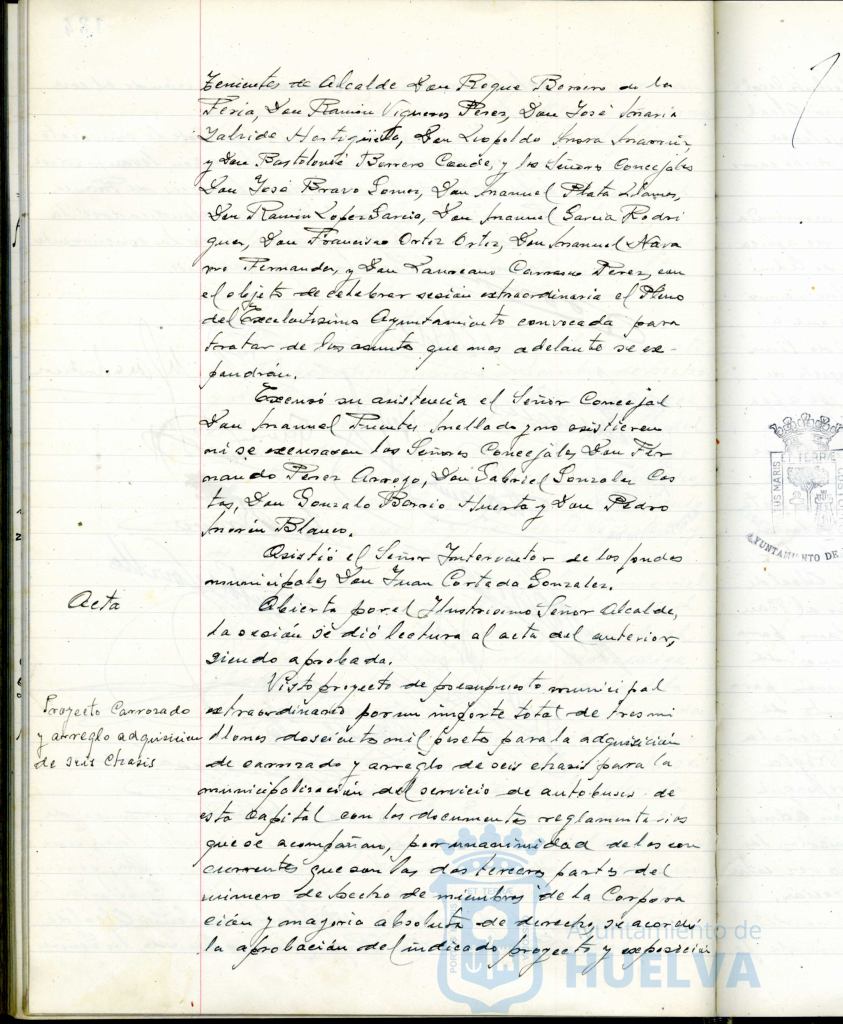 Tenientes de Alcalde Don Roque Borrero de la
Feria, Don Ramón Vigueras Perez, Don José María
Zalvide Hostigüela, Don Leopoldo Mora
y Don Bartolomé Borrero Conde, y los Señores Concejales
Don José Bravo Gomez, Don Manuel Plata Llamas,
Don Ramón Lopez Garcia, Don Manuel Garcia Rodri
guez, Don Francisco Ortiz Ortiz, Don Manuel Nava
rro Fernandez, y Don Laureano Carrasco Perez, con
el objeto de celebrar sesión extraordinaria el Pleno
del Excelentisimo Ayuntamiento convocada para
tratar de los asuntos que mas adelante se ex-
pondrán.
Excusó su asistencia el Señor Concejal
Don Manuel Fuentes Mellado y no asistieron
ni se excusaron los Señores Concejales, Don Fer
nando Perez Arroyo, Don Gabriel Gonzalez Cos
tas, Don Gonzalo Barrio Huerta y Don Pedro
Morón Blanco.
Asistió el Señor Interventor de los fondos
municipales Don Juan Gonzalez.
Acta
Abierta por el Ilustrisimo Señor Alcalde,
la sesión se dió lectura al acta del anterior,
siendo aprobada.
Proyecto Carrozado
y arreglo adquisicion
de seis chasis
Visto proyecto de presupuesto municipal
extraordinario por un importe total de tres mi
llones doscientas mil pesetas para la adquisición
de carrozado y arreglo de seis chasis para la
municipalización del servicio de autobuses de
esta Capital con los documentos reglamentarios
que se acompañan, por unanimidad de los con
currentes que son las dos terceras partes del
número de hecho de miembros de la Corpora
ción y mayoria absoluta de derecho, se acordó
la aprobación del indicado proyecto y exposición
Ayuntamiento de
HUELVA
AYUNTAMIENTO DE